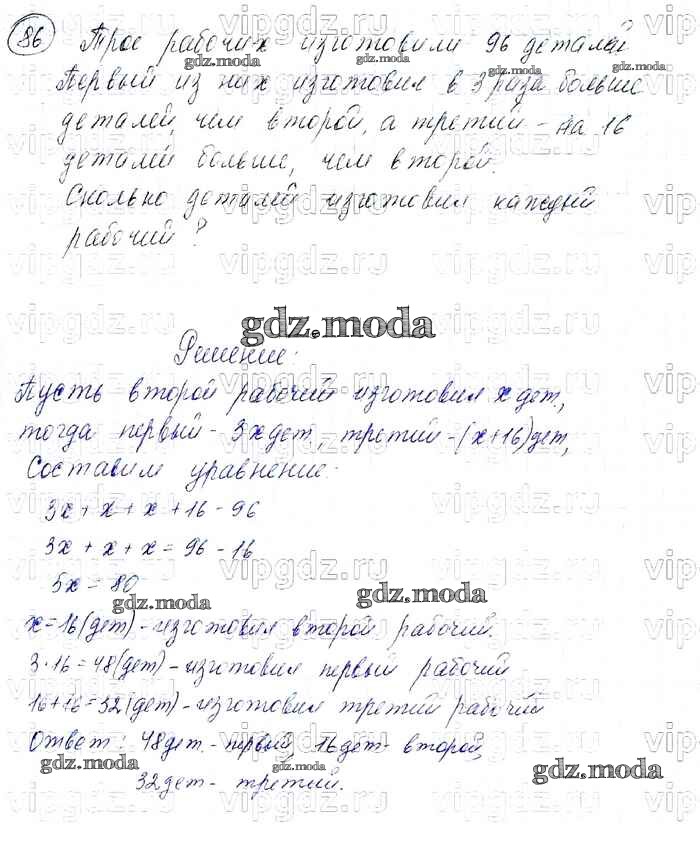 86 Трое рабочих изготовили 96 деталей.
Первый из них изготовил в 3 раза больше
деталей, чем второй, а третий - на 16
деталей больше, чем второй.
Сколько деталей изготовил каждый
рабочий?
gdz.moda
Решение:
Пусть второй рабочий изготовил x дет.,
тогда первый - 3x дет., третий - (x+16) дет,
Составим уравнение:
3x + x + x + 16 = 96
3x + x + x = 96 - 16
5x = 80
x = 16 (дет) - изготовил второй рабочий.
3·16 = 48 (дет) - изготовил первый рабочий
16+16=32 (дет) - изготовил третий рабочий
Ответ: 48 дет. - первый, 16 дет - второй,
32 дет - третий.